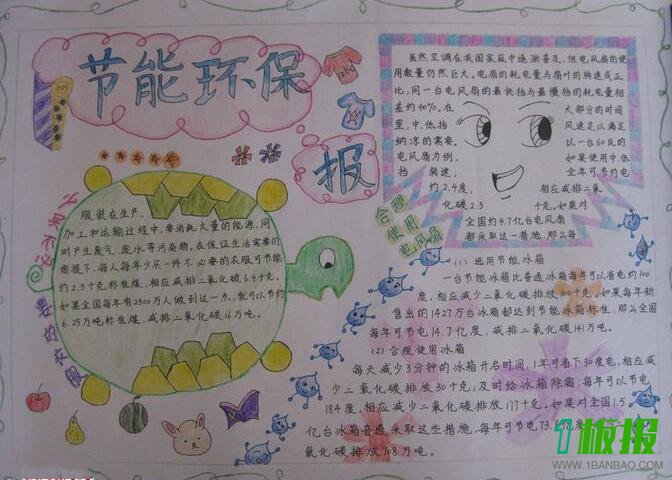 节能环保
报
服装在生产,
加工和运输过程中,要消耗大量的能源,同
时产生废气、废水等污染物,在保证生活需要的
前提下,每人每年少买一件不必要的衣服可节能
约2.5千克标准煤,相应减排二氧化碳6.4千克。
如果全国每年有2500万人做到这一点,就可以节约
6.25万吨标准煤,减排二氧化碳16万吨。
少买不必要的衣服
虽然空调在我国家庭中逐渐普及,但电风扇的使
用数量仍然巨大。电扇的耗电量与扇叶的转速成正
比,同一台电风扇的最快挡与最慢挡的耗电量相
差约40%。在 大部分的时间
里,中、低挡 风速足以满足
纳凉的需要。 以一台60瓦的
电风扇为例, 如果使用中、低
挡 转速, 全年可节约电
约2.4度, 相应减排二氧
化碳2.3 千克。如果对
全国约4.7亿台电风扇
都采取这一措施,那么每
合理
使用
电风扇
(1) 选用节能冰箱
一台节能冰箱比普通冰箱每年可以省电约100
度,相应减少二氧化碳排放100千克。如果每年新
售出的1427万台冰箱都达到节能冰箱标准,那么全国
每年可节电14.7亿度,减排二氧化碳141万吨。
(2) 合理使用冰箱
每天减少3分钟的冰箱开启时间,1年可省下30度电,相应减
少二氧化碳排放30千克;及时给冰箱除霜,每年可以节电
184度,相应减少二氧化碳排放177千克。如果对全国1.5
亿台冰箱普遍采取这些措施,每年可节电73.8亿度
碳排放708万吨。
abc
1板报
WWW.1BANBAO.COM